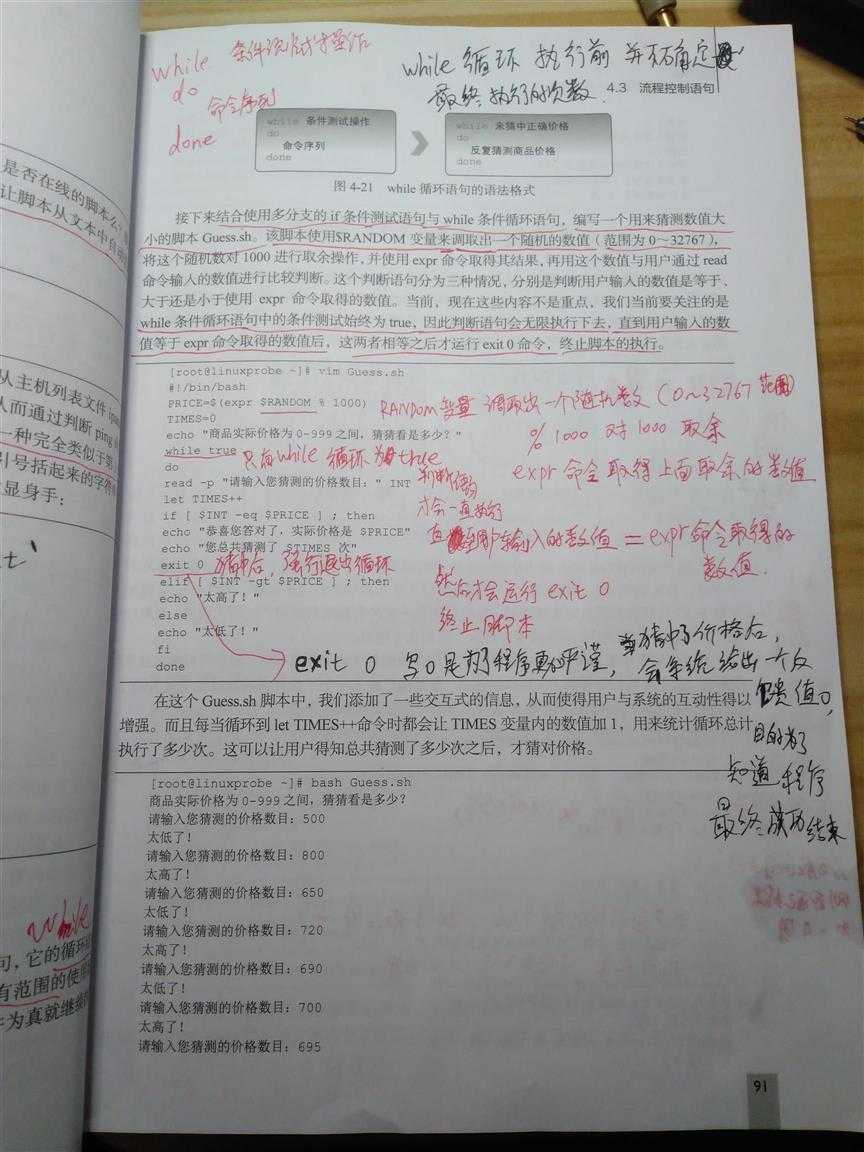 while 条件测试操作
do
命令序列
done
while 循环 执行前 并不确定
最终执行的次数.
4.3 流程控制语句
while 条件测试操作
do
命令序列
done
while 未猜中正确价格
do
反复猜测商品价格
done
图 4-21 while 循环语句的语法格式
接下来结合使用多分支的 if 条件测试语句与 while 条件循环语句，编写一个用来猜测数值大
小的脚本 Guess.sh。该脚本使用$RANDOM 变量来调取出一个随机的数值（范围为 0～32767），
将这个随机数对 1000 进行取余操作，并使用 expr 命令取得其结果，再用这个数值与用户通过 read
命令输入的数值进行比较判断。这个判断语句分为三种情况，分别是判断用户输入的数值是等于、
大于还是小于使用 expr 命令取得的数值。当前，现在这些内容不是重点，我们当前要关注的是
while 条件循环语句中的条件测试始终为 true，因此判断语句会无限执行下去，直到用户输入的数
值等于 expr 命令取得的数值后，这两者相等之后才运行 exit 0 命令，终止脚本的执行。
[root@linuxprobe ~]# vim Guess.sh
#!/bin/bash
PRICE=$(expr $RANDOM % 1000)
TIMES=0
echo "商品实际价格为 0-999 之间，猜猜看是多少？"
while true
do
read -p "请输入您猜测的价格数目：" INT
let TIMES++
if [ $INT -eq $PRICE ] ; then
echo "恭喜您答对了，实际价格是 $PRICE"
echo "您总共猜测了 $TIMES 次"
exit 0
elif [ $INT -gt $PRICE ] ; then
echo "太高了！"
else
echo "太低了！"
fi
done
RANDOM 变量 调取出一个随机数 (0~32767 范围)
% 1000 对 1000 取余
expr 命令 取得上面取余的数值
只有while 循环 为true
判断语句
才会一直执行
直到用户输入的数值 = expr 命令取得的
数值.
然后才会运行 exit 0
终止脚本
猜中后, 强行退出循环
exit 0 写0是为了程序更加严谨,
当猜中了价格后,
会给系统给出一个反
馈值0,
目的为了
知道程序
最终成功结束
在这个 Guess.sh 脚本中，我们添加了一些交互式的信息，从而使得用户与系统的互动性得以
增强。而且每当循环到 let TIMES++命令时都会让 TIMES 变量内的数值加 1，用来统计循环总计
执行了多少次。这可以让用户得知总共猜测了多少次之后，才猜对价格。
[root@linuxprobe ~]# bash Guess.sh
商品实际价格为 0-999 之间，猜猜看是多少？
请输入您猜测的价格数目：500
太低了！
请输入您猜测的价格数目：800
太高了！
请输入您猜测的价格数目：650
太低了！
请输入您猜测的价格数目：720
太高了！
请输入您猜测的价格数目：690
太低了！
请输入您猜测的价格数目：700
太高了！
请输入您猜测的价格数目：695
91
是否在线的脚本么？
让脚本从文本中自动
从主机列表文件
从而通过判断 ping
一种完全类似于第
引号括起来的字符
显身手：
while
句，它的循环
有范围的使用
为真就继续